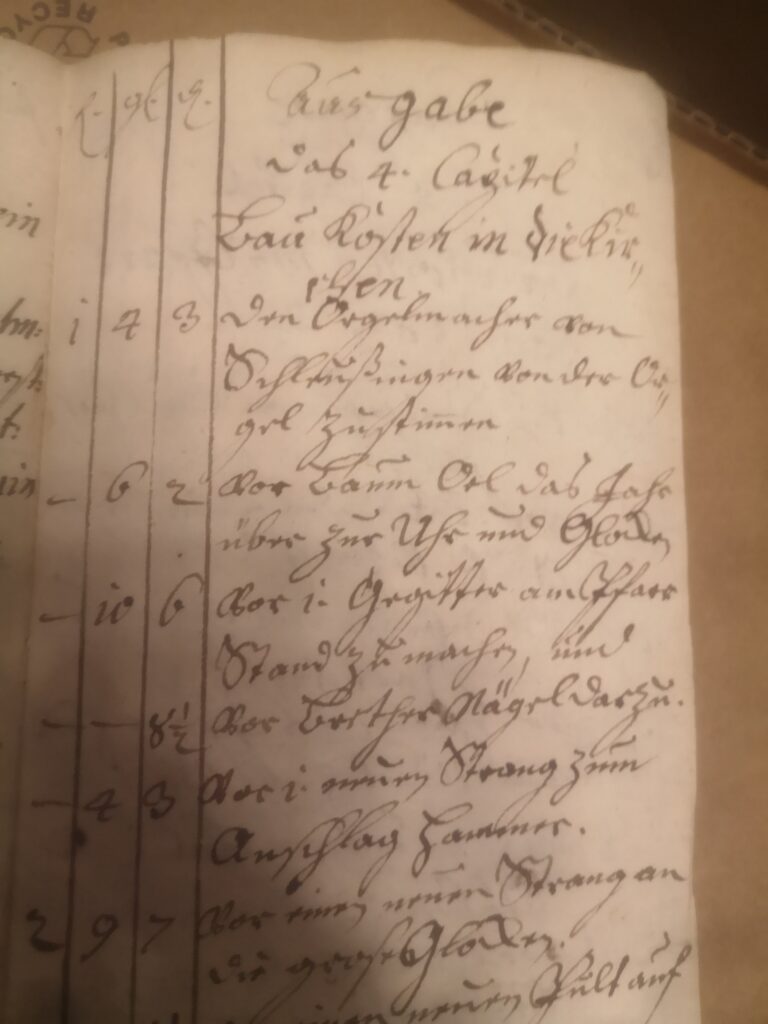 RECYC
fl. gl. ₰. Ausgabe
das 4. Capitel
Bau Kosten in die Kir„
chen
1 4 3 den Orgelmacher von
Schleußingen von der Or„
gel zustimmen
— 6 2 vor Baum Oel das Jahr
über zur Uhr und Glocken
— 10 6 vor 1. Gegitter am Pfarr
Stand zu machen, und
— — 8½ vor Brether Nägel darzu.
— 4 3 vor 1. neuen Strang zum
Anschlag Hammer.
2 9 7 vor einen neuen Strang an
die grose Glocken.
einen neuen Pult auf